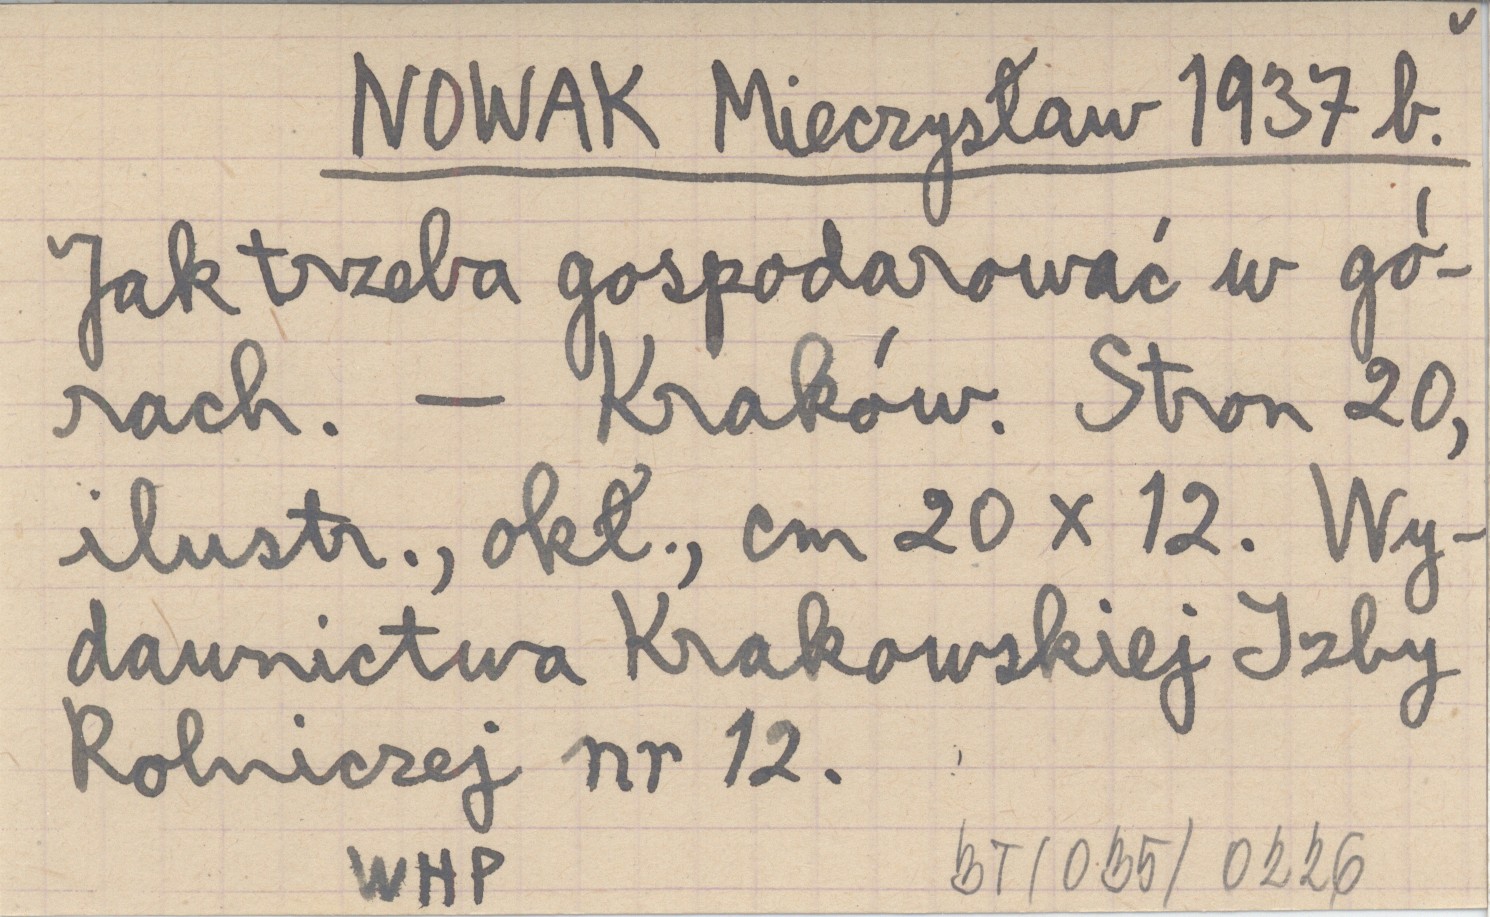 NOWAK Mieczysław 1937 b.
Jak trzeba gospodarować w gó-
rach. — Kraków. Stron 20,
ilustr., okł., cm 20 x 12. Wy-
dawnictwa Krakowskiej Izby
Rolniczej nr 12.
WHP
BT/035/0226